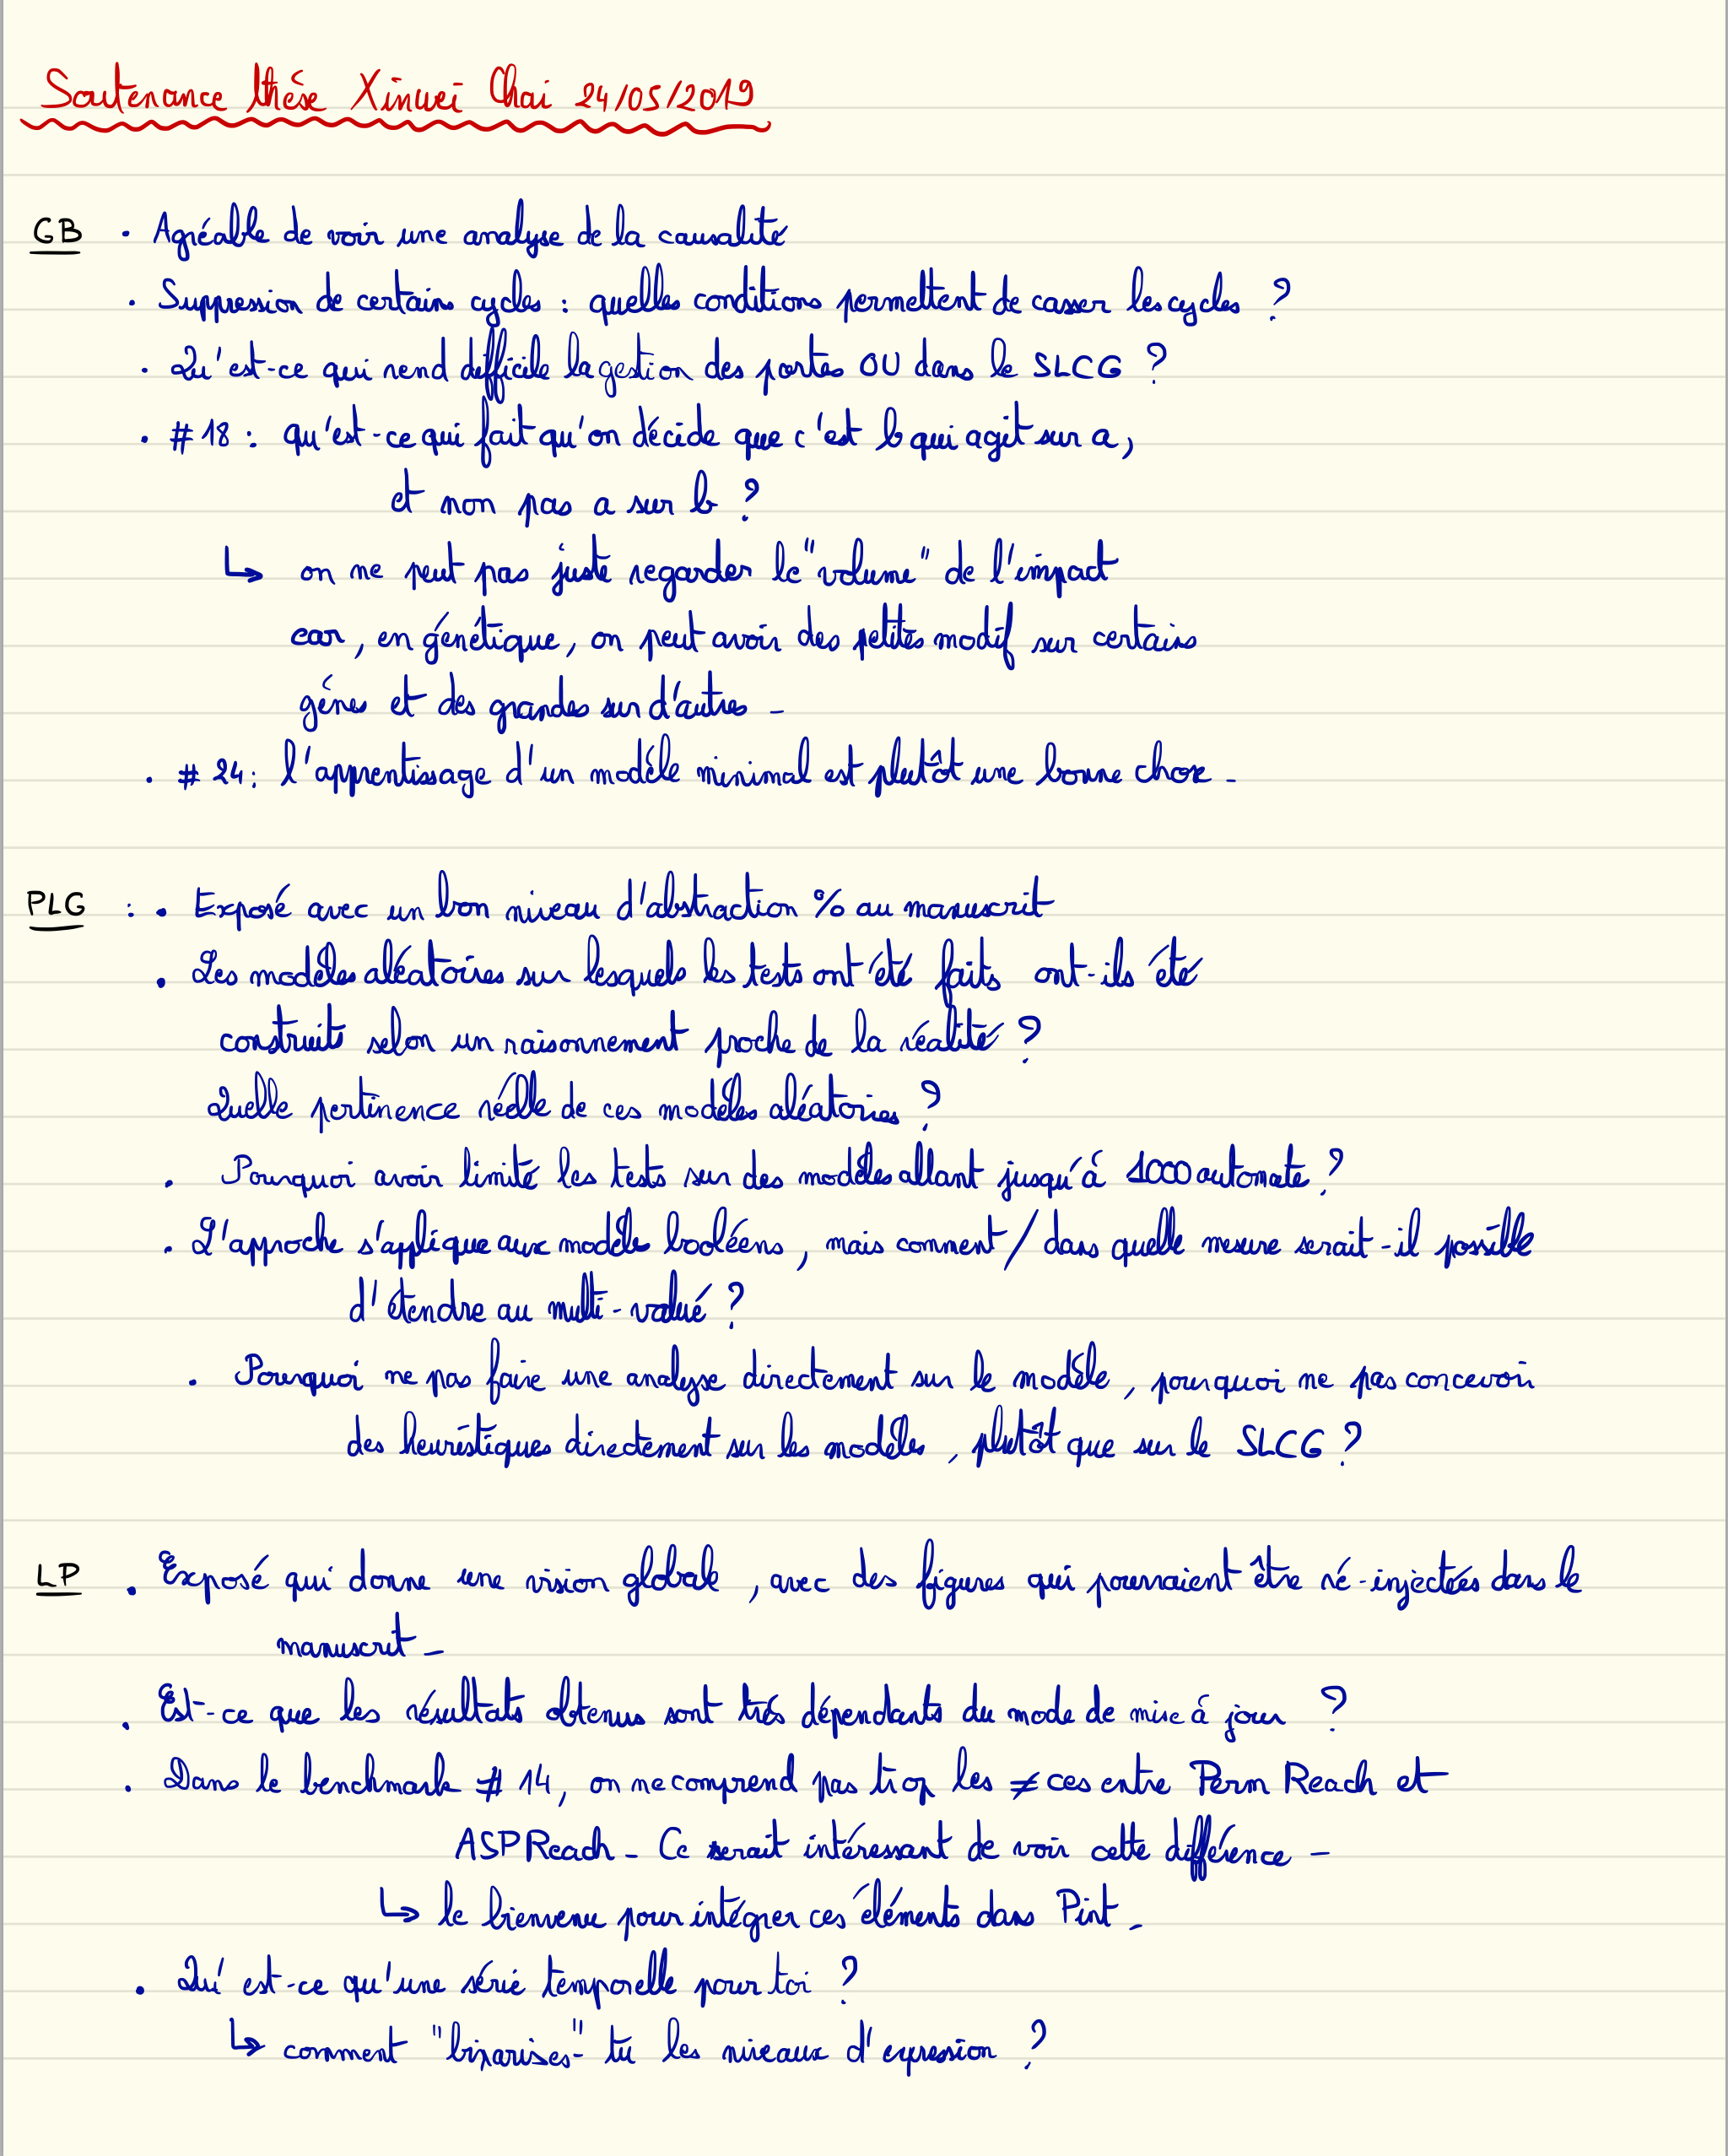 Soutenance thèse Xinwei Chai 24/05/2019
GB · Agréable de voir une analyse de la causalité
· Suppression de certains cycles : quelles conditions permettent de casser les cycles ?
· Qu'est-ce qui rend difficile la gestion des portes OU dans le SLCG ?
· #18 : qu'est-ce qui fait qu'on décide que c'est b qui agit sur a,
et non pas a sur b ?
↳ on ne peut pas juste regarder le "volume" de l'impact
car, en génétique, on peut avoir des petites modif sur certains
gènes et des grandes sur d'autres -
· # 24 : l'apprentissage d'un modèle minimal est plutôt une bonne chose -
PLG : · Exposé avec un bon niveau d'abstraction % au manuscrit
· Les modèles aléatoires sur lesquels les tests ont été faits ont-ils été
construits selon un raisonnement proche de la réalité ?
Quelle pertinence réelle de ces modèles aléatoires ?
· Pourquoi avoir limité les tests sur des modèles allant jusqu'à 1000 automate ?
· L'approche s'applique aux modèle booléens, mais comment / dans quelle mesure serait-il possible
d'étendre au multi-valué ?
· Pourquoi ne pas faire une analyse directement sur le modèle, pourquoi ne pas concevoir
des heuristiques directement sur les modèles, plutôt que sur le SLCG ?
LP · Exposé qui donne une vision globale, avec des figures qui pourraient être ré-injectées dans le
manuscrit -
· Est-ce que les résultats obtenus sont très dépendants du mode de mise à jour ?
· Dans le benchmark # 14, on ne comprend pas trop les ≠ces entre Perm Reach et
ASPReach - Ce serait intéressant de voir cette différence -
↳ le bienvenu pour intégrer ces éléments dans Pint -
· Qu'est-ce qu'une série temporelle pour toi ?
↳ comment "binarises-" tu les niveaux d'expression ?